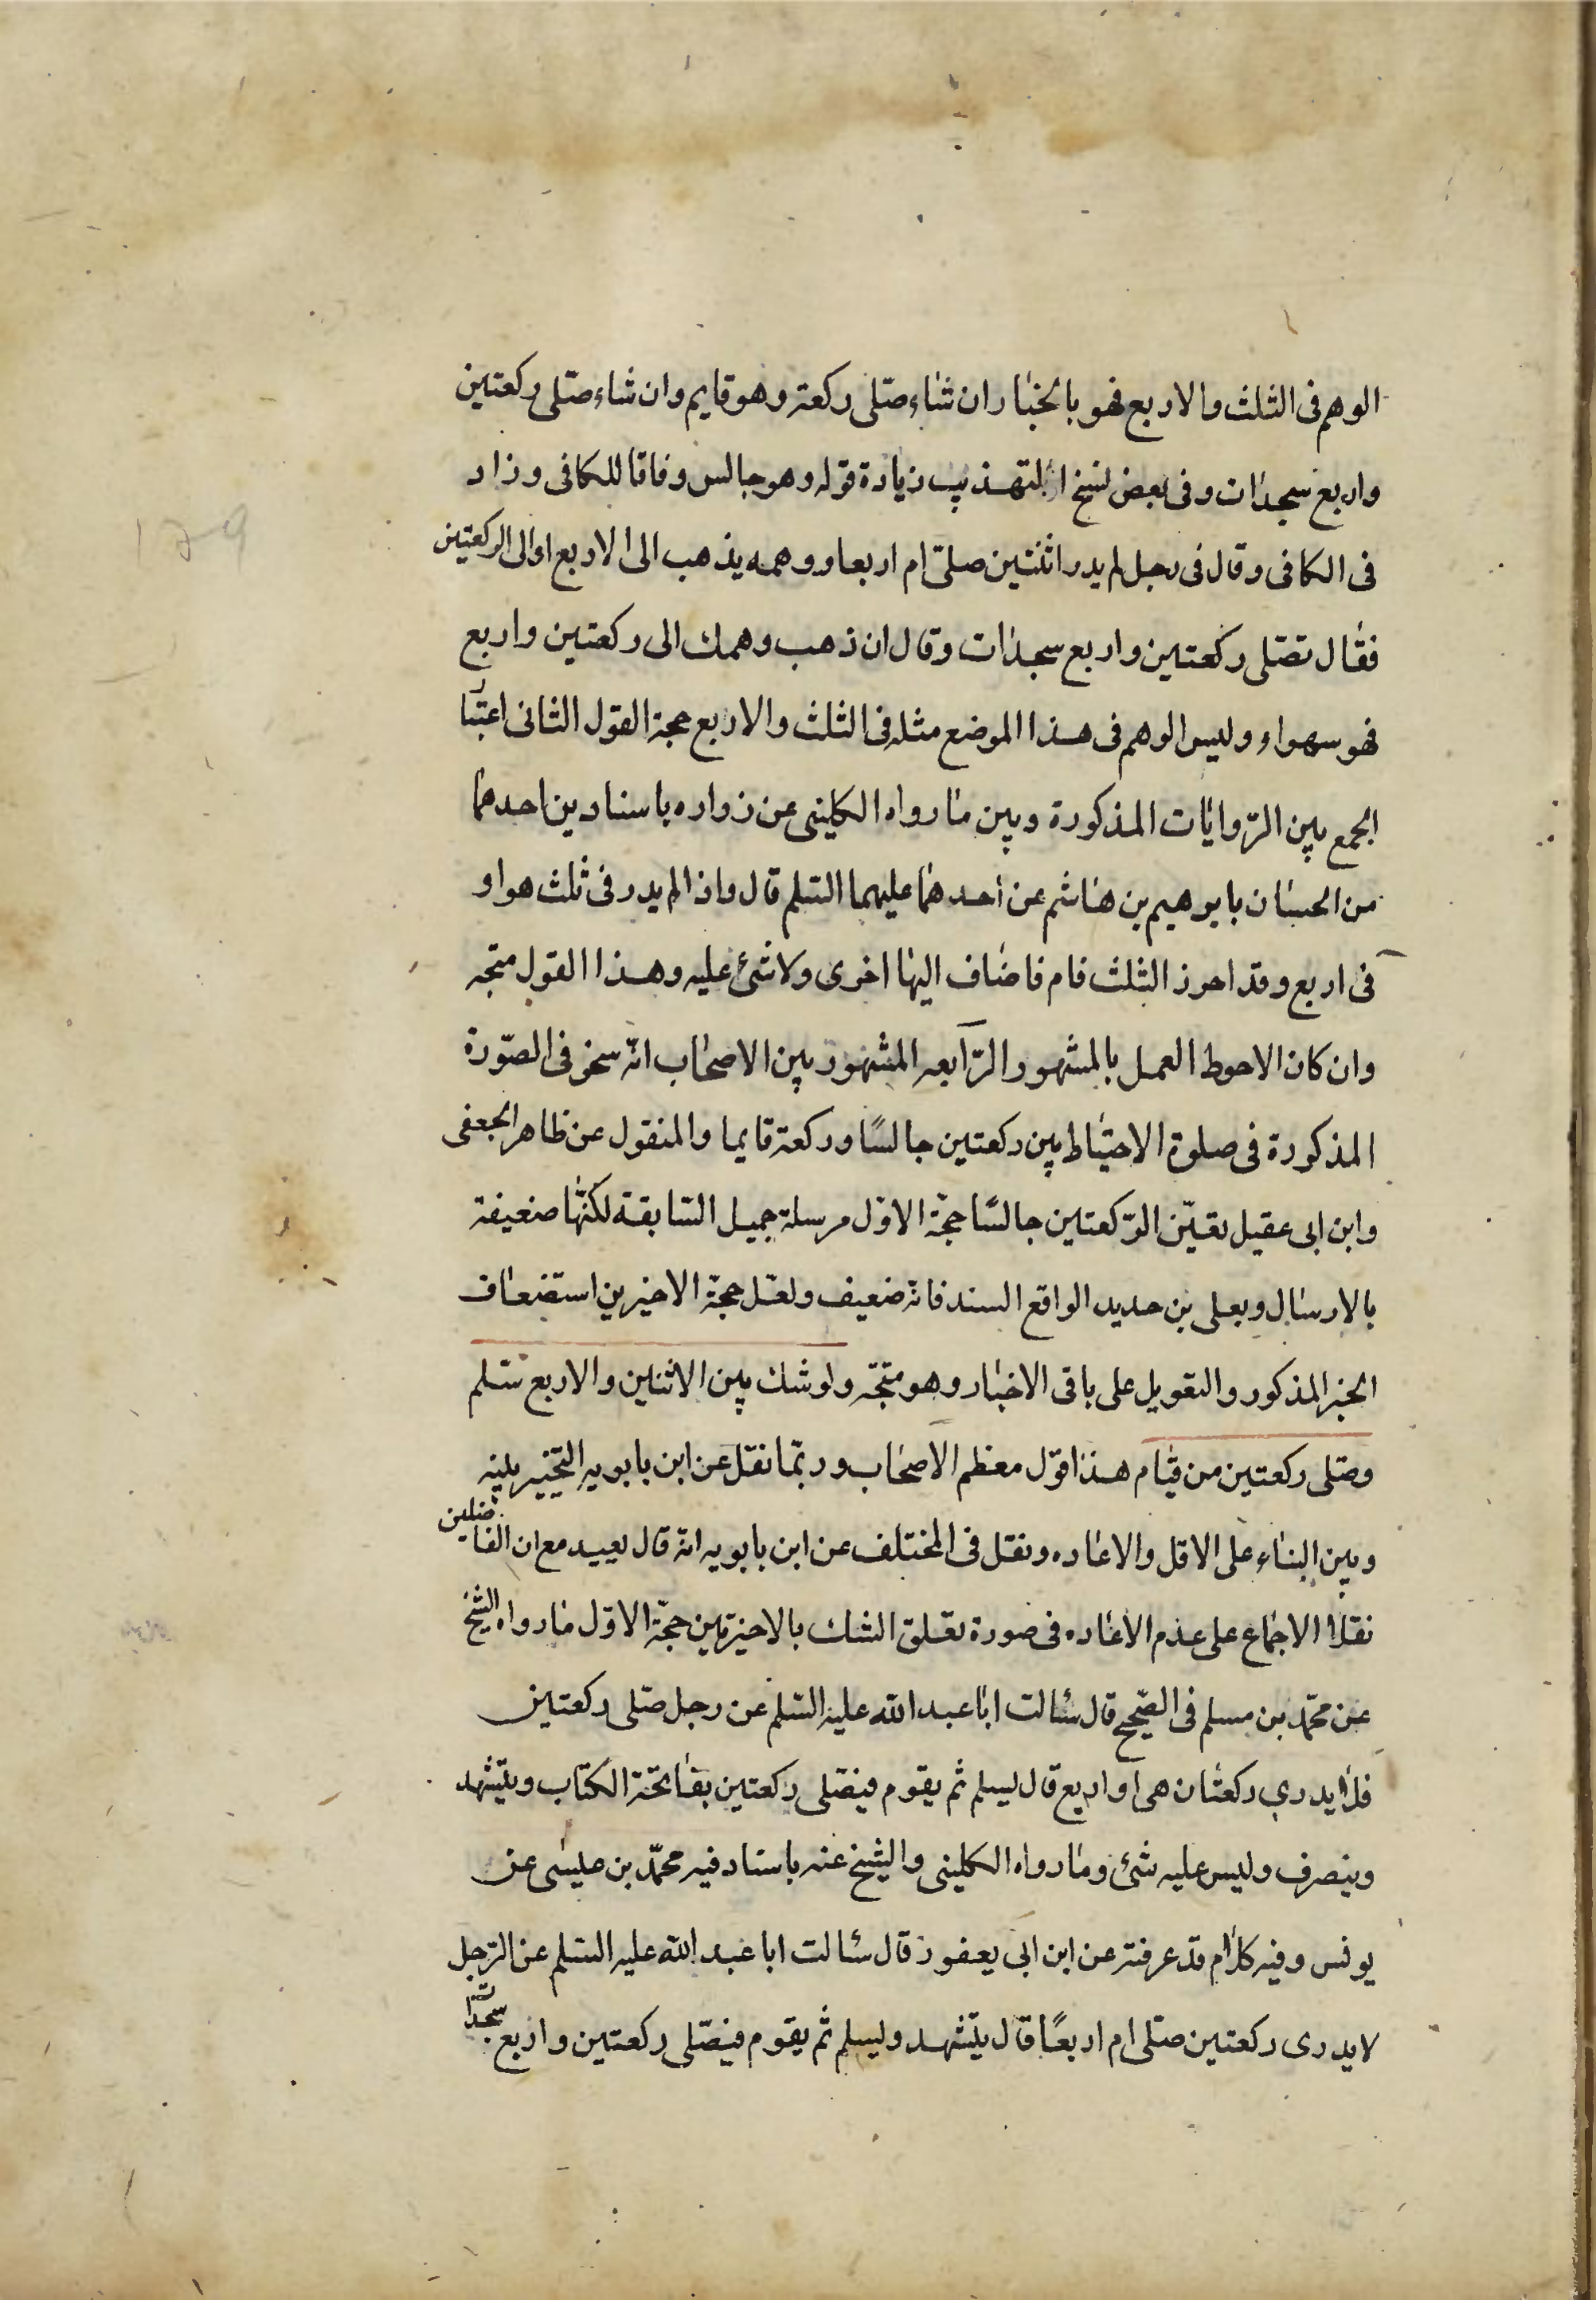 الوهم فى الثلث والاربع فهو بالخيار ان شاء صلى ركعة وهو قايم وان شاء صلى ركعتين
واربع سجدات وفى بعض نسخ التهذيب زيادة قوله وهو جالس وفاقا للكافى وزاد
فى الكافى وقال فى رجل لم يدر اثنتين صلى ام اربعا ووهمه يذهب الى الاربع او الى الركعتين
فقال تصلى ركعتين واربع سجدات وقال ان ذهب وهمك الى ركعتين واربع
فهو سواء وليس الوهم فى هذا الموضع مثله فى الثلث والاربع حجة القول الثانى اعتبار
الجمع بين الروايات المذكورة وبين ما رواه الكلينى عن زراره باسنادين احدهما
من الحسان بابرهيم بن هاشم عن احدهما عليهما السلم قال واذا لم يدر فى ثلث هو او
فى اربع وقد احرز الثلث قام فاضاف اليها اخرى ولا شئ عليه وهذا القول متجه
وان كان الاحوط العمل بالمشهور الرابعه المشهور بين الاصحاب انه يتخير فى الصورة
المذكورة فى صلوة الاحتياط بين ركعتين جالسًا وركعة قايما والمنقول عن ظاهر الجعفى
وابن ابى عقيل تعين الركعتين جالسًا حجة الاول مرسلة جميل السابقة لكنها ضعيفة
بالارسال وبعلى بن حديد الواقع السند فانه ضعيف ولعل حجة الاخيرين استضعاف
الخبر المذكور والتعويل على باقى الاخبار وهو متجه ولو شك بين الاثنين والاربع سلم
وصلى ركعتين من قيام هذا قول معظم الاصحاب وربما نقل عن ابن بابويه التخيير بينه
وبين البناء على الاقل والاعاده ونقل فى المختلف عن ابن بابويه انه قال يعيد مع ان الفاضلين
نقلا الاجماع على عدم الاعاده فى صورة تعلق الشك بالاخيرتين حجة الاول ما رواه الشيخ
عن محمد بن مسلم فى الصحيح قال سئالت ابا عبد الله عليه السلم عن رجل صلى ركعتين
فلا يدرى ركعتان هى او اربع قال يسلم ثم يقوم فيصلى ركعتين بفاتحة الكتاب ويتشهد
وينصرف وليس عليه شئ وما رواه الكلينى والشيخ عنه باسناد فيه محمد بن عيسى عن
يونس وفيه كلام قد عرفته عن ابن ابى يعفور قال سئالت ابا عبد الله عليه السلم عن الرجل
لا يدرى ركعتين صلى ام اربعًا قال يتشهد ويسلم ثم يقوم فيصلى ركعتين واربع سجدات